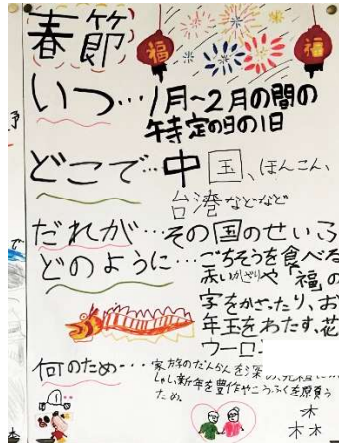 春節
福 福
いつ…1月~2月の間の
特定の日の1日
どこで…中国、ほんこん、
台湾などなど
だれが…その国のせいふ
どのように…ごちそうを食べる
赤いかざりや「福」の
字をかざったり、お
年玉をわたす、花
ウーロ
何のため…家族のだんらんを深
しゃし、新年を豊作やこうふくを願う
ため。
木
木木